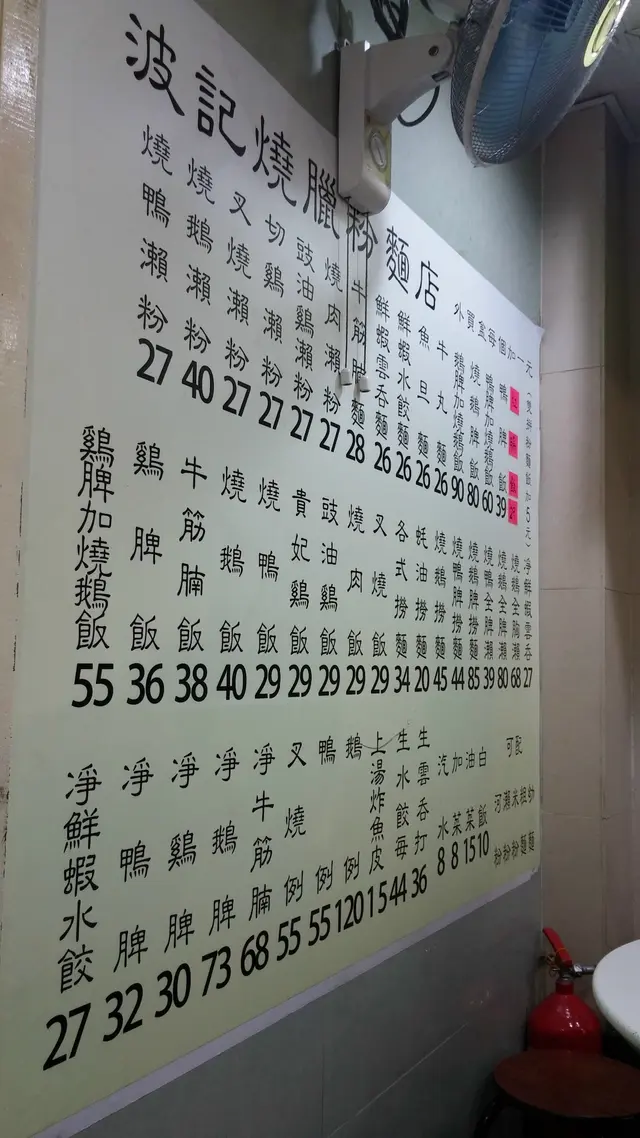 波記燒臘粉麵店
外賣盒每個加一元
(雙拼粉麵飯加5元)
燒鴨瀨粉 27
燒鵝瀨粉 40
叉燒瀨粉 27
切雞瀨粉 27
豉油雞瀨粉 27
燒肉瀨粉 27
牛筋腩麵 28
鮮蝦雲吞麵 26
鮮蝦水餃麵 26
魚旦麵 26
牛丸麵 26
鵝脾加燒鵝飯 90
燒鵝脾飯 80
鴨脾加燒鵝飯 60
鴨脾飯 39
雞脾加燒鵝飯 55
雞脾飯 36
牛筋腩飯 38
燒鵝飯 40
燒鴨飯 29
貴妃雞飯 29
豉油雞飯 29
燒肉飯 29
叉燒飯 29
各式撈麵 34
蚝油撈麵 20
燒鵝撈麵 45
燒鴨脾撈麵 44
燒鵝脾撈麵 85
燒鴨全脾瀨 39
燒鵝全脾瀨 80
燒鵝全胸瀨 68
淨鮮蝦雲吞 27
淨鮮蝦水餃 27
淨鴨脾 32
淨雞脾 30
淨鵝脾 73
淨牛筋腩 68
叉燒例 55
鴨例 55
鵝例 120
上湯炸魚皮 15
生水餃每 44
生雲吞打 36
汽水 8
加菜 8
油菜 15
白飯 10
可配
河粉
瀨粉
米粉
粗麵
幼麵